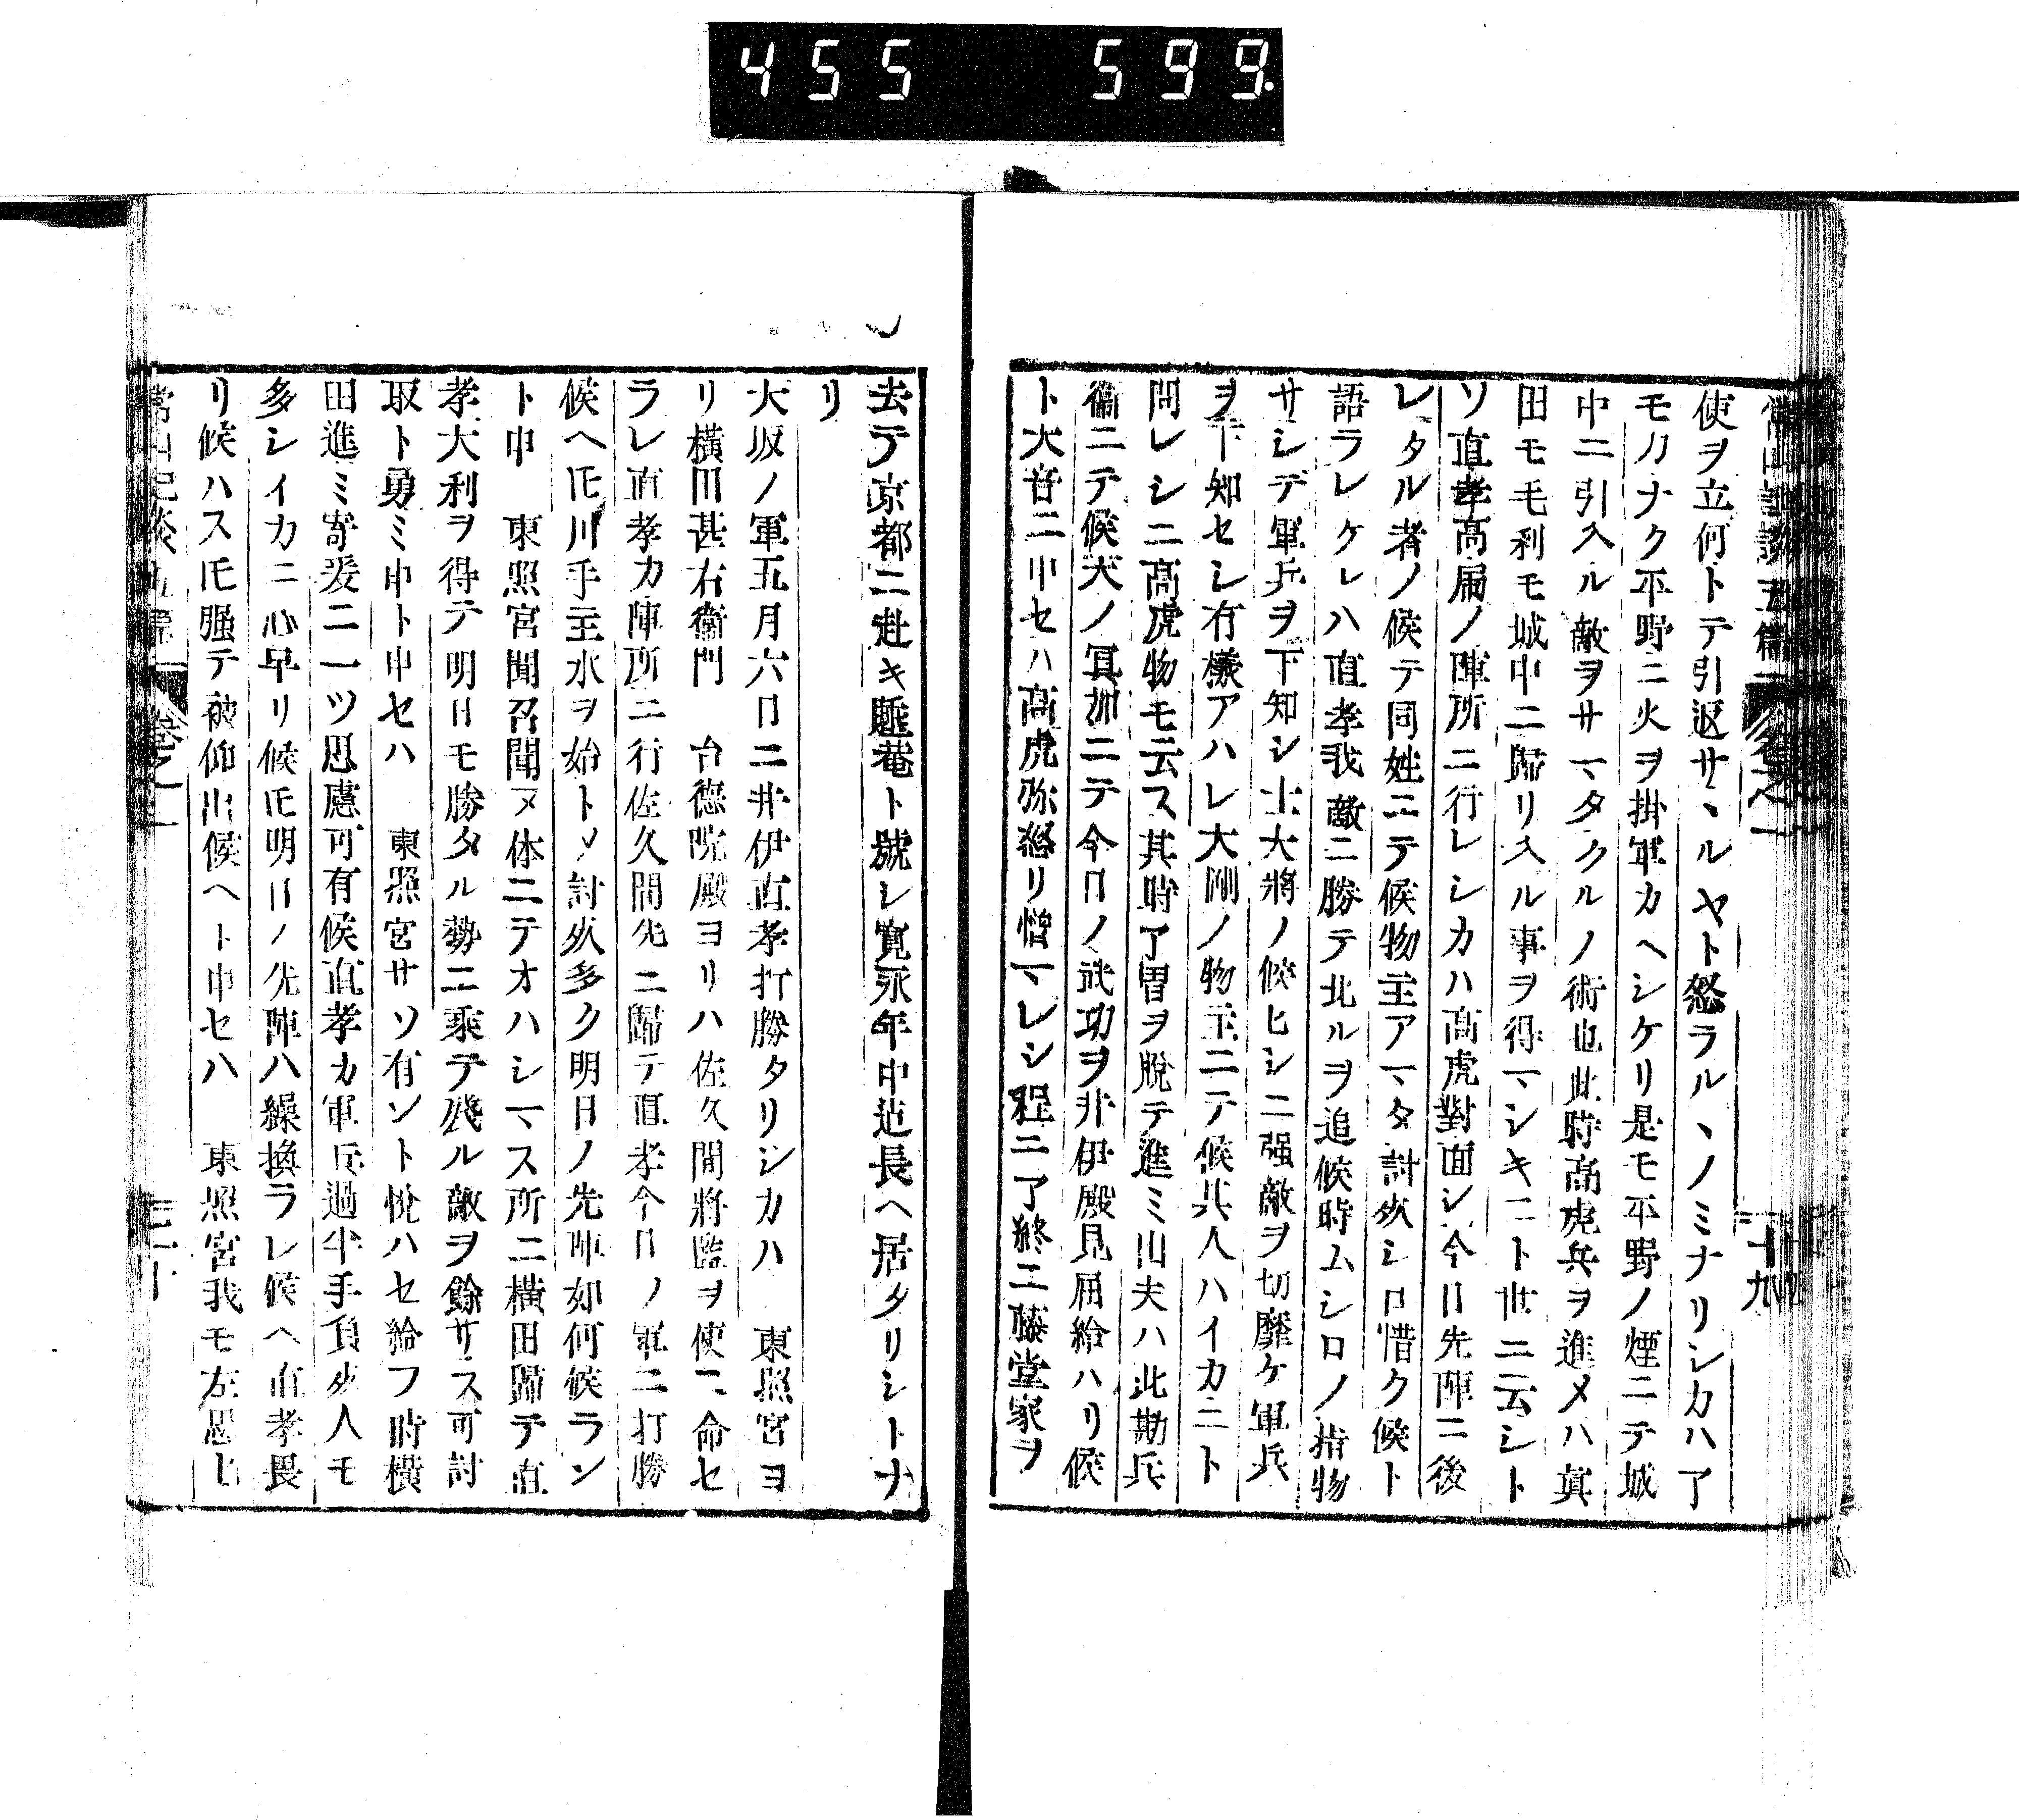 455 599
使ヲ立何トテ引返サヽルヤト怒ラルヽノミナリシカハ了
モ力ナク平野ニ火ヲ掛軍カヘシケリ是モ平野ノ煙ニテ城
中ニ引入ル敵ヲサマタクルノ術也此時高虎兵ヲ進メハ真
田モ毛利モ城中ニ歸リ入ル事ヲ得マシキニト世ニ云シト
ソ直孝高虎ノ陣所ニ行レシカハ高虎對面シ今日先陣ニ後
レタル者ノ候テ同姓ニテ候物主アマタ討死シ口惜ク候ト
語ラレケレハ直孝我敵ニ勝テ北ルヲ追候時ムシロノ指物
サシテ軍兵ヲ下知シ士大將ノ候ヒシニ强敵ヲ切靡ケ軍兵
ヲ下知セシ有樣アハレ大剛ノ物主ニテ候其人ハイカニト
問レシニ高虎物モ云ス其時了冑ヲ脫テ進ミ出夫ハ此勘兵
衞ニテ候天ノ冥加ニテ今日ノ武功ヲ井伊殿見届給ハリ候
ト大音ニ申セハ高虎弥怒リ憎マレシ程ニ了終ニ藤堂家ヲ
十九
去テ京都ニ赴キ睡菴ト號シ寛永年中迠長ヘ居タリシトナ
リ
大坂ノ軍五月六日ニ井伊直孝打勝タリシカハ 東照宮ヨ
リ橫田甚右衞門 台德院殿ヨリハ佐久間將監ヲ使ニ命セ
ラレ直孝カ陣所ニ行佐久間先ニ歸テ直孝今日ノ軍ニ打勝
候ヘ𪜈川手主水ヲ始トメ討死多ク明日ノ先陣如何候ラン
ト申 東照宮聞召聞ヌ体ニテオハシマス所ニ橫田歸テ直
孝大利ヲ得テ明日モ勝タル勢ニ乘テ殘ル敵ヲ餘サス可討
取ト勇ミ申ト申セハ 東照宮サソ有ント悅ハセ給フ時橫
田進ミ寄爰ニ一ツ思慮可有候直孝カ軍兵過半手負死人モ
多シイカニ心早リ候𪜈明日ノ先陣ハ繰換ラレ候ヘ直孝畏
リ候ハス𪜈强テ被仰出候ヘト申セハ 東照宮我モ左思ヒ